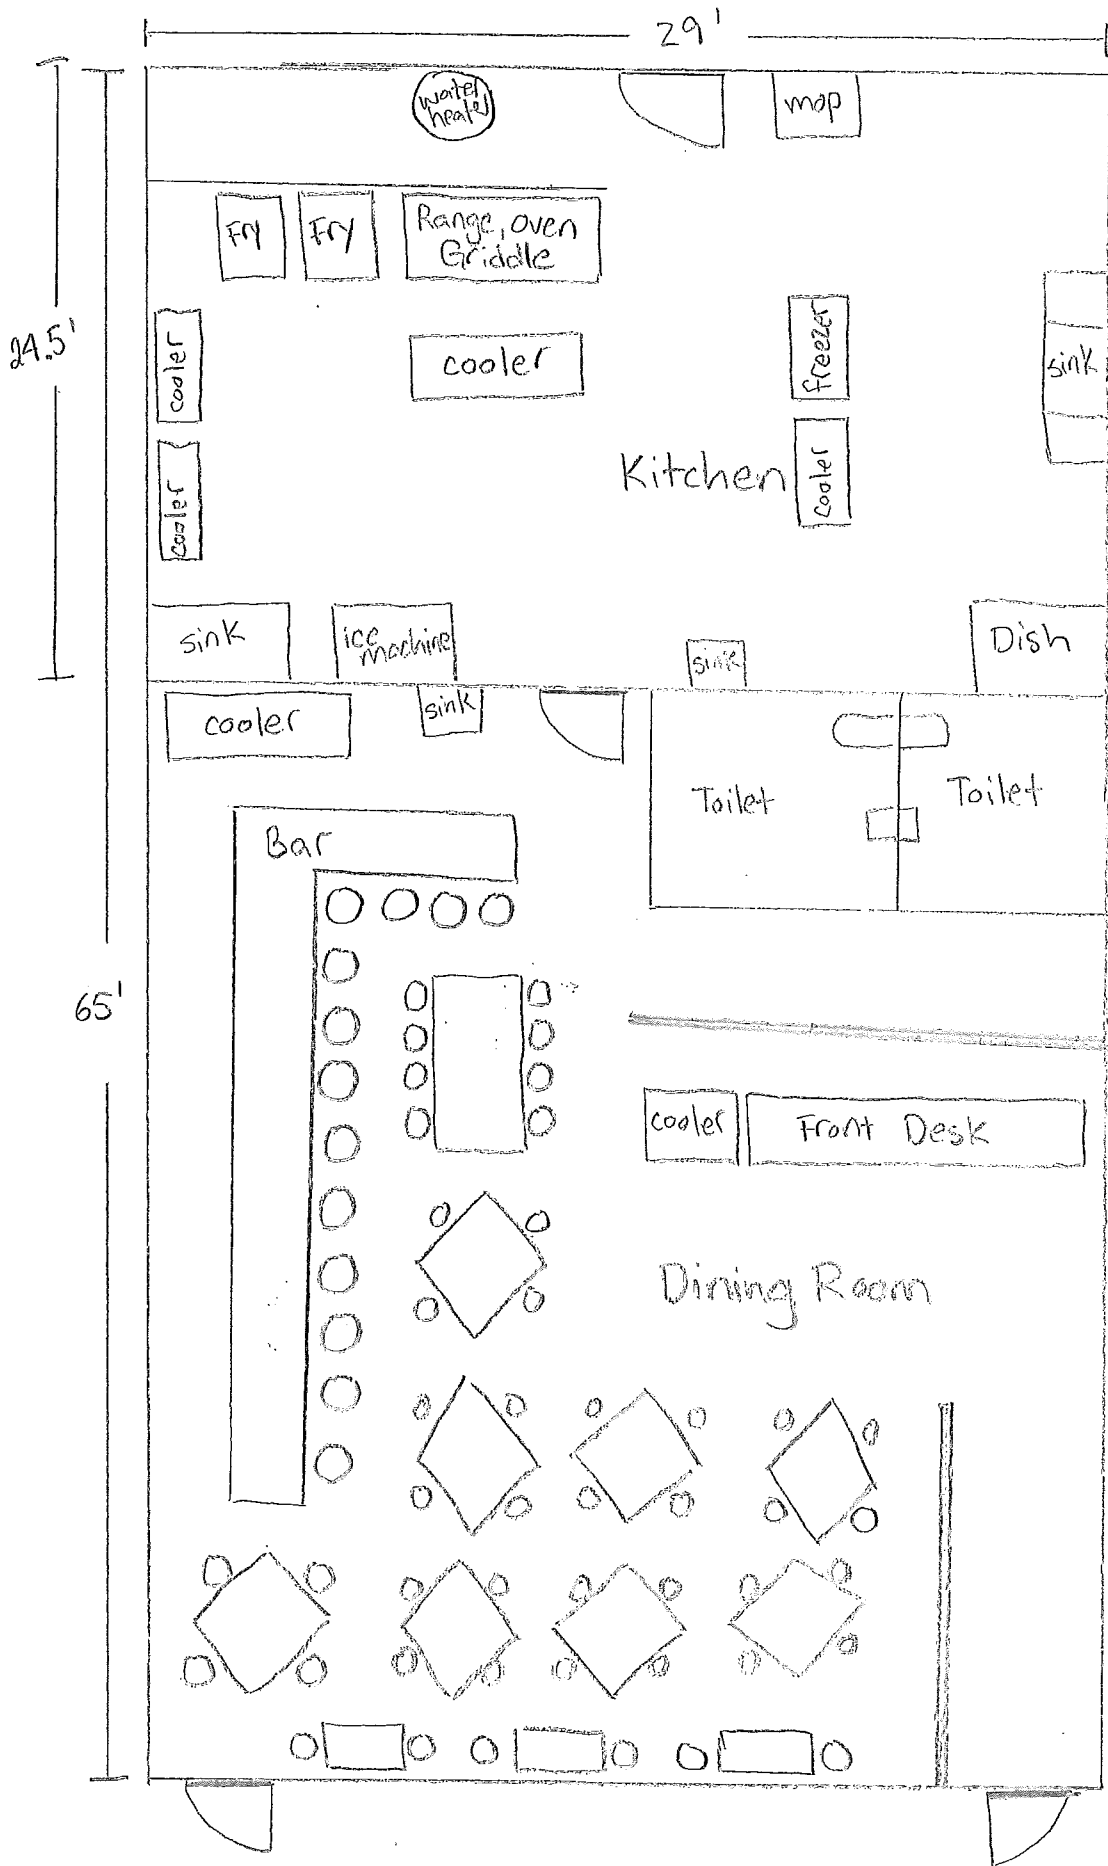 29'
water
heater
mop
Fry
Fry
Range, oven
Griddle
24.5'
cooler
cooler
freezer
sink
cooler
Kitchen
cooler
sink
ice
machine
sink
Dish
cooler
sink
Toilet
Toilet
Bar
65'
cooler
Front Desk
Dining Room